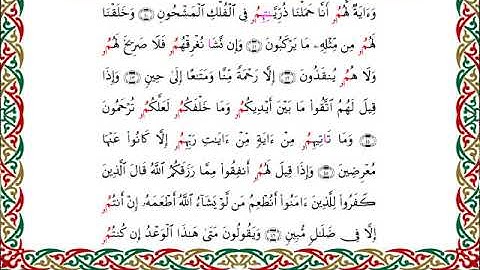 وَءَايَةٌ لَّهُمُۥ أَنَّا حَمَلْنَا ذُرِّيَّٰتِهِمُۥ فِى ٱلْفُلْكِ ٱلْمَشْحُونِ وَخَلَقْنَا
لَهُمُۥ مِن مِّثْلِهِۦ مَا يَرْكَبُونَ وَإِن نَّشَأْ نُغْرِقْهُمُۥ فَلَا صَرِيخَ لَهُمُۥ
وَلَا هُمُۥ يُنقَذُونَ إِلَّا رَحْمَةً مِّنَّا وَمَتَٰعًا إِلَىٰ حِينٍ وَإِذَا
قِيلَ لَهُمُ ٱتَّقُوا۟ مَا بَيْنَ أَيْدِيكُمُۥ وَمَا خَلْفَكُمُۥ لَعَلَّكُمُۥ تُرْحَمُونَ
وَمَا تَاتِيهِمُۥ مِنْ ءَايَةٍ مِّنْ ءَايَٰتِ رَبِّهِمُۥ إِلَّا كَانُوا۟ عَنْهَا
مُعْرِضِينَ وَإِذَا قِيلَ لَهُمُۥ أَنفِقُوا۟ مِمَّا رَزَقَكُمُ ٱللَّهُ قَالَ ٱلَّذِينَ
كَفَرُوا۟ لِلَّذِينَ ءَامَنُوا۟ أَنُطْعِمُ مَن لَّوْ يَشَآءُ ٱللَّهُ أَطْعَمَهُۥ إِنْ أَنتُمُۥ
إِلَّا فِى ضَلَٰلٍ مُّبِينٍ وَيَقُولُونَ مَتَىٰ هَٰذَا ٱلْوَعْدُ إِن كُنتُمُۥ